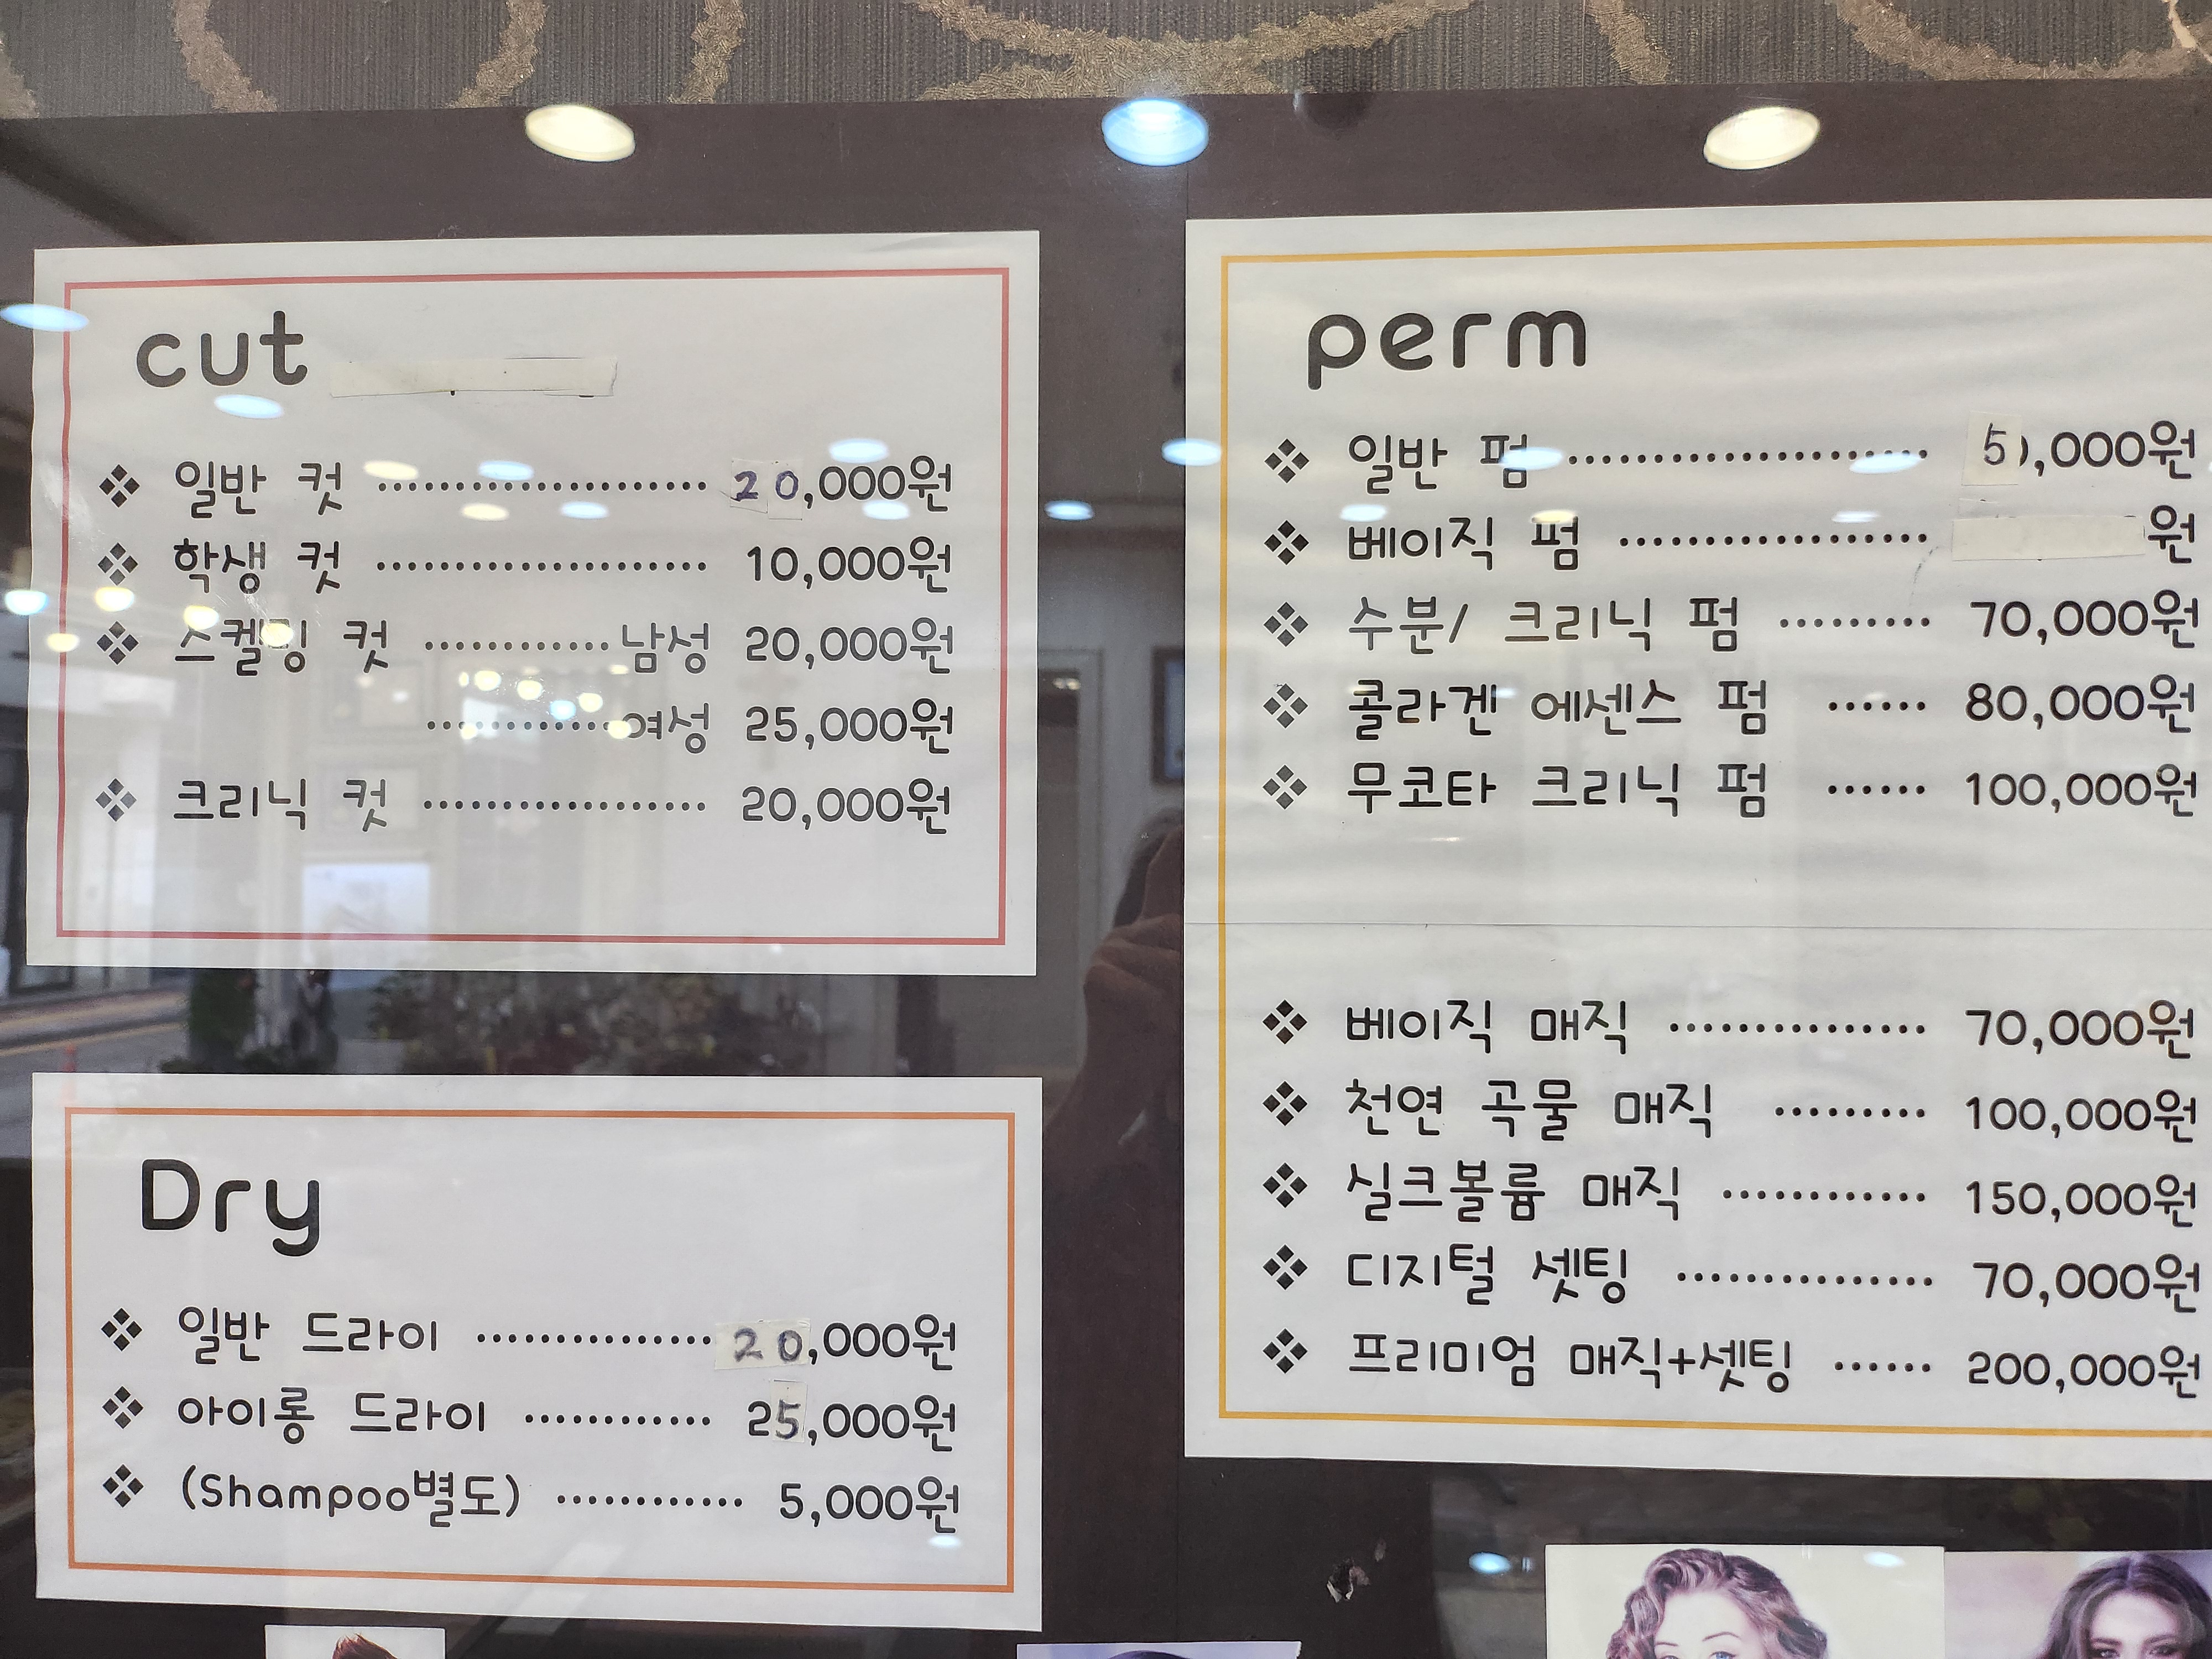 cut
❖ 일반 컷 ........................ 20,000원
❖ 학생 컷 ........................ 10,000원
❖ 스켈링 컷 ............남성 20,000원
............여성 25,000원
❖ 크리닉 컷 .................... 20,000원
Dry
❖ 일반 드라이 ................ 20,000원
❖ 아이롱 드라이 ............. 25,000원
❖ (Shampoo별도) ............. 5,000원
perm
❖ 일반 펌 .......................... 50,000원
❖ 베이직 펌 ...................... 원
❖ 수분/ 크리닉 펌 ........... 70,000원
❖ 콜라겐 에센스 펌 ....... 80,000원
❖ 무코타 크리닉 펌 ....... 100,000원
❖ 베이직 매직 .................. 70,000원
❖ 천연 곡물 매직 ........... 100,000원
❖ 실크볼륨 매직 ............... 150,000원
❖ 디지털 셋팅 .................. 70,000원
❖ 프리미엄 매직+셋팅 ....... 200,000원